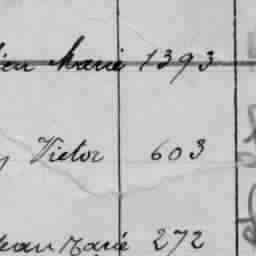 Marie 1393
Victor 603
Jean Marie 272